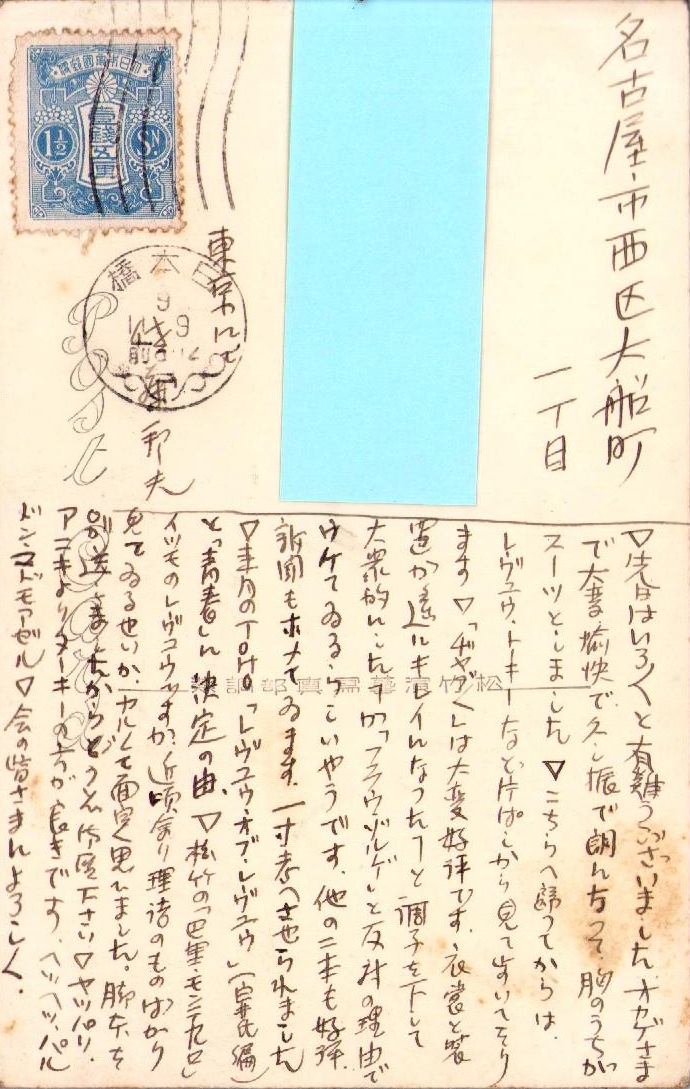 名古屋市西区大船町
一丁目
東京にて
邦夫
日本橋
大日本帝国郵便
壹銭五厘
1½ Sn
Post
松竹演藝写真部謹製
▽先日はいろ〱と有難うございました。オカゲさま
で大変愉快で久し振で朗になって、胸のうちが
スーッとしました ▽こちらへ歸ってからは、
レヴュウ、トーキーなど片ぱしから見て歩いてをり
ます ▽「 」は大変好評です。衣裳と装
置が遥にキレイになつたことゝ調子を下して
大衆的にしたことが「 」と反対の理由で
ウケてゐるらしいやうです。他の二本も好評、
新聞もホメてゐます。一寸考へさせられました
▽来月のTOHOは「レヴュウ・オブ・レヴュウ」(編)
と「青春」に決定の由、▽松竹の「巴里・モンテカルロ」
イツモのレヴュウですが、近頃余り理詰のものばかり
見てゐるせいか、カルくて面白く思ひました。脚本を
送りましたからどうぞ下さい▽ヤツパリ、
アニキよりターキーの方が良きです、ヘツヘツ、パル
ドンマドモアゼル▽会の皆さまによろしく。